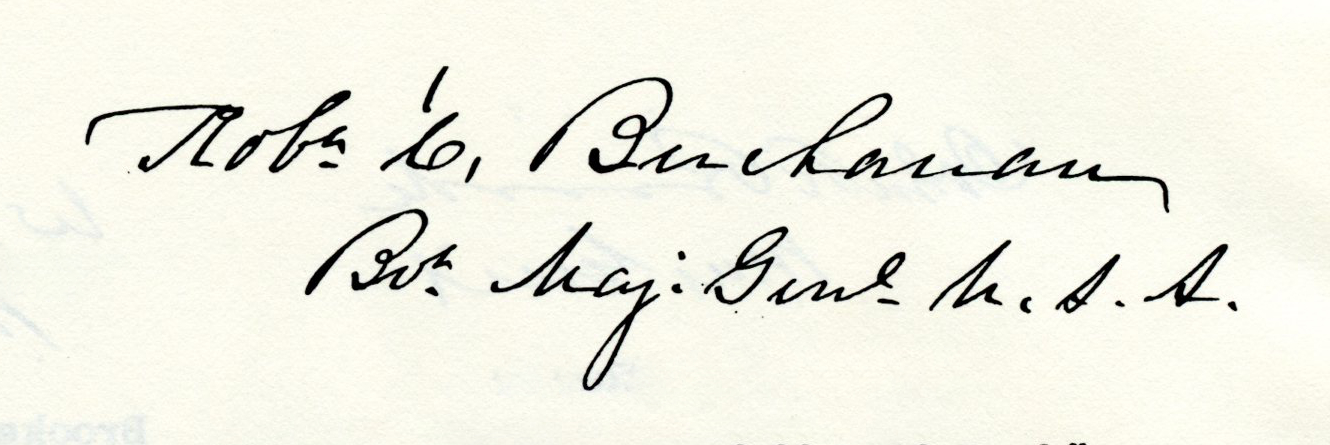 Robt C. Buchanan
Bvt Maj. Genl U.S.A.